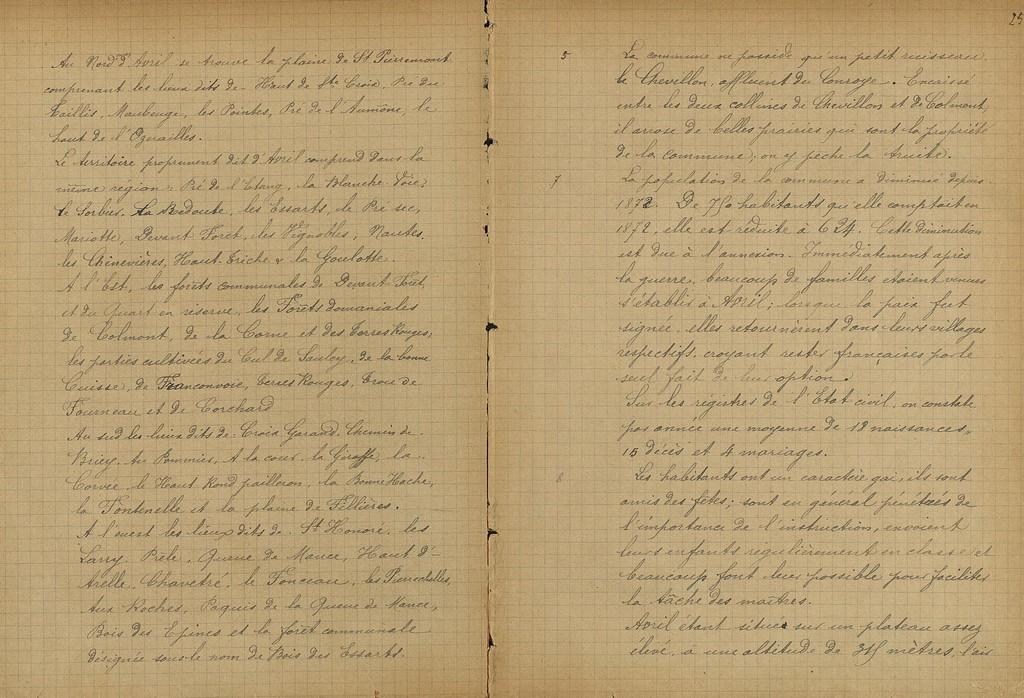 Au Nord d'Avril se trouve la plaine de St Pierremont
comprenant les lieux dits de - Haut de Ste Croix, Pré du
Taillis, Maubeuge, les Pointes, Pré de l'Aumône, le
haut de l'Ozerailles.
Le territoire proprement dit d'Avril comprend dans la
même région : Pré de l'Etang, la Blanche Voie,
le Sorbier, La Redoute, les Essarts, le Pré sec,
Mariotte, Devant Forêt, les Vignobles, Nautes.
les Chinevières, Haut Friche & la Goulotte.
A l'Est, les forêts communales de Devant Forêt,
et du Quart en réserve, les Forêts domaniales
de Colmont, de la Corne et des Terres Rouges,
les parties cultivées du Cul de Saulcy, de la bonne
Cuisse, de Franconvoie, Terres Rouges, Trou de
Fourneau et de Corchard
Au sud les lieux dits de : Croix Gerard, Chemin de
Briey, Au Pommier, A la cour, la Giraffe, la
Corvée, le Haut Rond pailleron, la Bonne Hache,
la Fontenelle et la plaine de Fellières.
A l'ouest les lieux dits de St Honoré, les
Larry, Prêle, Queue de Mance, Haut d'
Arelle, Chavêtré, le Fonceau, les Pierrochelles,
Aux Roches, Paquis de la Queue de Mance,
Bois des Epines et la forêt communale
désignée sous le nom de Bois des Essarts.
25
5 La commune ne possède qu'un petit ruisseau
le Chevillon, affluent du Conroye. Encaissé
entre les deux collines de Chevillon et de Colmont,
il arrose de belles prairies qui sont la propriété
de la commune ; on y pêche la truite.
7 La population de la commune a diminué depuis
1872. De 750 habitants qu'elle comptait en
1872, elle est réduite à 624. Cette diminution
est due à l'annexion. Immédiatement après
la guerre, beaucoup de familles étaient venues
s'établir à Avril ; lorsque la paix fut
signée, elles retournèrent dans leurs villages
respectifs, croyant rester françaises par le
seul fait de leur option.
Sur les registres de l'Etat civil, on constate
par année une moyenne de 18 naissances,
15 décès et 4 mariages.
8 Les habitants ont un caractère gai, ils sont
amis des fêtes ; sont en général pénétrés de
l'importance de l'instruction, envoient
leurs enfants régulièrement en classe et
beaucoup font leur possible pour faciliter
la tâche des maîtres.
Avril étant situé sur un plateau assez
élevé, à une altitude de 315 mètres, l'air